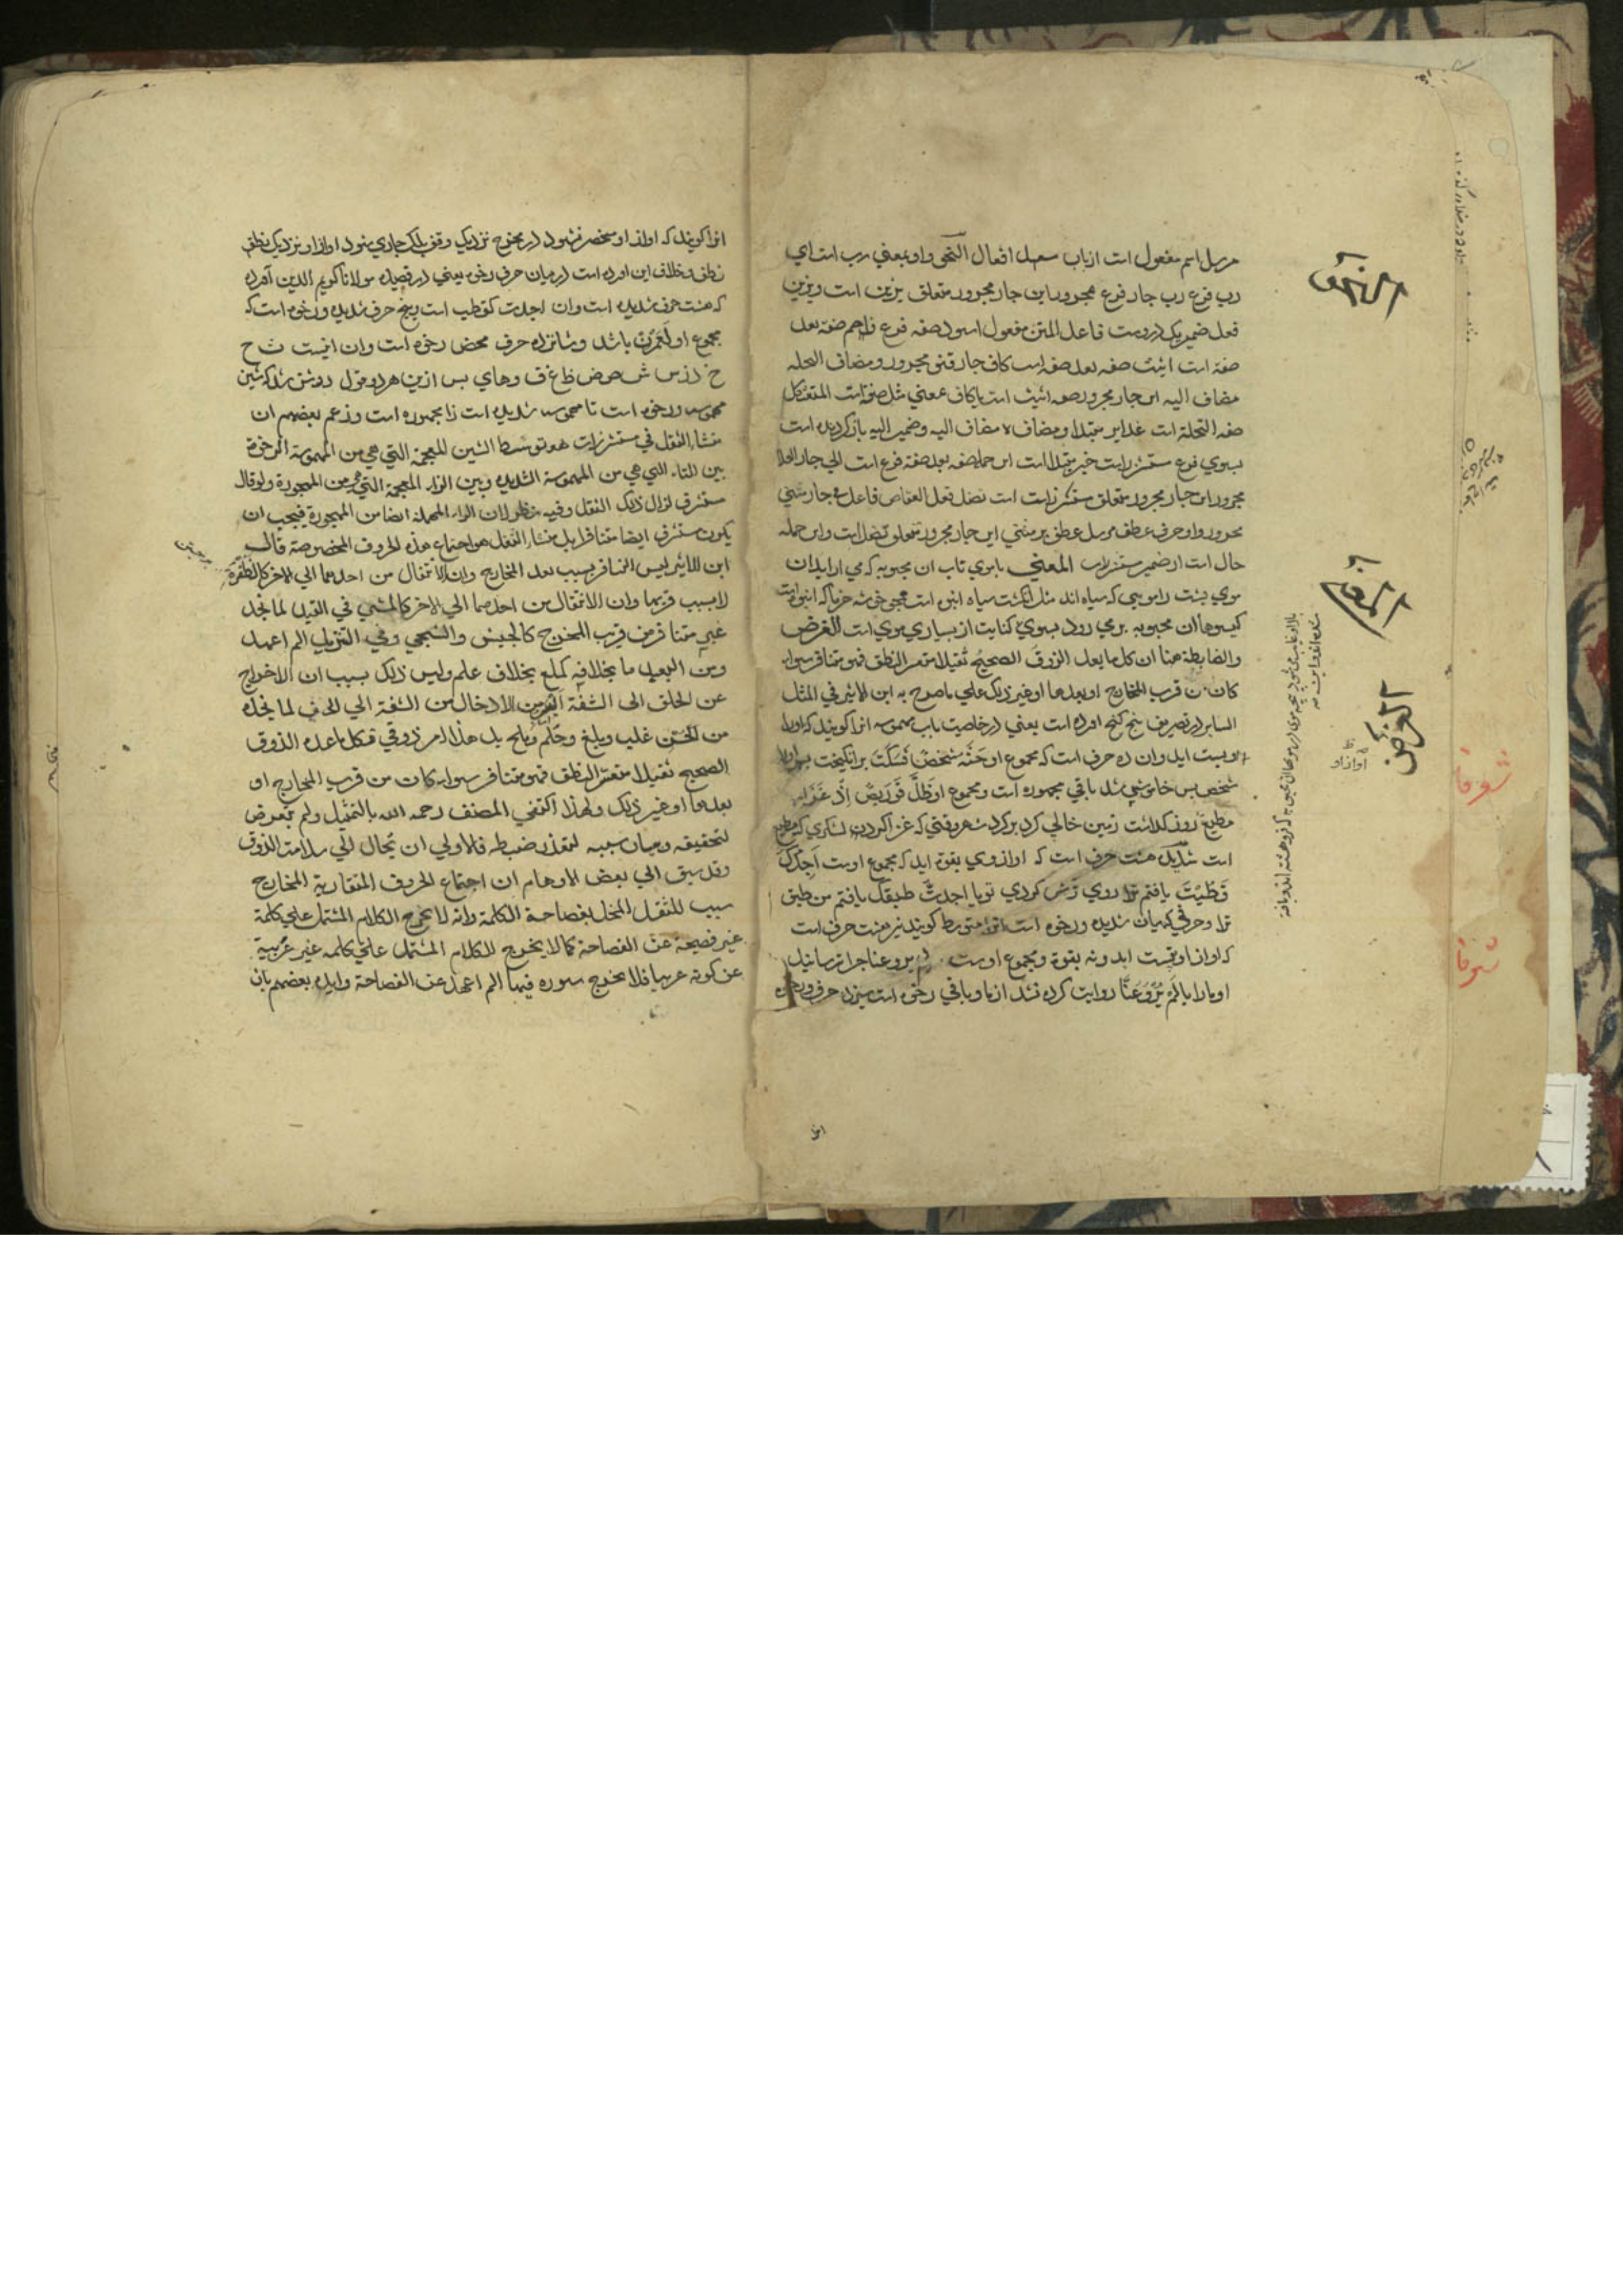 مرسل اسم مفعول است از باب افعال النحو واو بمعني رب است اي
رب فرع رب جار فرع مجرور اين جار مجرور متعلق يزين است ويزين
فعل ضمير يک دروست فاعل المتن مفعول اسود صفه فرع فاحم صفه بعد
صفه است اثيث صفه بعد صفه است كاف جار قنو مجرور ومضاف النخله
مضاف اليه اين جار مجرور صفه اثيث است يا كاف بمعني مثل صفه است المتعثكل
صفه النخلة است غداير مبتدا ومضاف ه مضاف اليه وضمير اليه بازكرديده است
بسوي فرع مستشزرات خبر مبتدا است اين جمله صفه بعد صفه فرع است الي جار العلا
مجرور اين جار مجرور متعلق مستشزرات است تضل فعل العقاص فاعل في جار مثني
مجرور واو حرف عطف مرسل عطف بر مثني اين جار مجرور متعلق تضل است واين جمله
حال است از ضمير مستشزرات المعني يا موي تاب ان محبوبه كه مي ارايد ان
موي پشت را مويي كه سياه اند مثل انكشت سياه انبوه است همچو خوشه خرما كه انبوه است
كيسوها ان محبوبه بر مي رود بسوي كنايت از بسياري موي است الغرض
والضابطة هنا ان كل ما يعد الذوق الصحيح ثقيلا متعسر النطق فهو متنافر سواء
كان من قرب المخارج او بعدها او غير ذلك علي ما صرح به ابن الاثير في المثل
الساير در تصريف پنج كنج اورده است يعني در خاصيت باب مهموسه انرا كويند كه اواز
او پست ايد وان ده حرف است كه مجموع او حَثَّهُ شخصٌ فسَكَتَ برانكيخت او را
شخص پس خاموش شد باقي مجهوره است ومجموع او ظلَّ قَوٍ رَبَضٌ اِذْ غَزا
مطيع روز كذاشت زمين خالي كرد بركرد شهر وقتي كه غزا كردن لشكري كه مطيع
است شديده هشت حرف است كه اواز وي بقوة ايد كه مجموع اوست اَجِدُكَ
قَطَّبْتَ يافتم ترا روي ترش كردي تو يا اجدتُّ طبقك يافتم من طبق
ترا وحرفي كه ميان شديده ورخوه است انرا متوسط كويند نيز هشت حرف است
كه اواز او پست ايد ونه بقوة ومجموع اوست لم يروعنا چرا ترسانيد
او ما را يا لَمْ يَرْوِ عَنَّا روايت كرده نشد از ما وباقي رخوه است سيزده حرف ورخوه
الغرض
اواز او
شعرفا
شرفا
انرا كويند كه اواز او منحصر نشود در مخرج نزديک وقف بلک جاري شود اواز او نزديک نطق
نطق وخلاف اين اورده است در ميان حرف رخوه يعني در قصيده مولانا كريم الدين آمده
كه هشت حرف شديده است وان اجدت كقطب است وپنج حرف شديده ورخوه است كه
مجموع او لَمْ نَرُع باشد وشانزده حرف محض رخوه است وان اينست ث ح
خ ذ ز س ش ص ض ظ غ ف وهاي پس ازين هر دو قول روشن شد كه شين
مهموسه ورخوه است تا مهموسه شديده است زا مجهوره است وزعم بعضهم ان
منشاء الثقل في مستشزرات هو توسط الشين المعجمة التي هي من المهموسة الرخوة
بين التاء التي هي من المهموسة الشديدة وبين الزاء المعجمة التي هي من المجهورة ولو قال
مستشرف لزال ذلك الثقل وفيه نظر لان الراء المهملة ايضا من المجهورة فيجب ان
يكون مستشرف ايضا متنافرا بل منشاء الثقل هو اجتماع هذه الحروف المخصوصة قال
ابن الاثير ليس التنافر بسبب بعد المخارج وان الانتقال من احدهما الي الاخر كالطفرة
لا بسبب قربها وان الانتقال من احدهما الي الاخر كالمشي في القيد لما نجد
غير متنافر من قريب المخرج كالجيش والشجي وفي التنزيل الم اعهد
ومن البعيد ما بخلافه كملع بخلاف علم وليس ذلك بسبب ان الاخراج
عن الحلق الى الشفة ايسر من الادخال من الشفة الي الحلق لما نجده
من الحسن غلب وبلغ وحلم وملح بل هذا امر ذوقي فكل ما عده الذوق
الصحيح ثقيلا متعسر النطق فهو متنافر سواء كان من قرب المخارج او
بعدها او غير ذلك ولهذا اكتفي المصنف رحمه الله بالتمثيل ولم يتعرض
لتحقيقه وبيان سببه لتعذر ضبطه فالاولي ان يحال الي سلامة الذوق
وقد سبق الي بعض الاوهام ان اجتماع الحروف المتقاربة المخارج
سبب للثقل المخل بفصاحة الكلمة وانه لا يخرج الكلام المشتمل علي كلمة
غير فصيحة عن الفصاحة كما لا يخرج الكلام المشتمل علي كلمه غير عربية
عن كونه عربيا فلا يخرج سوره فيها الم اعهد عن الفصاحة وايده بعضهم بان